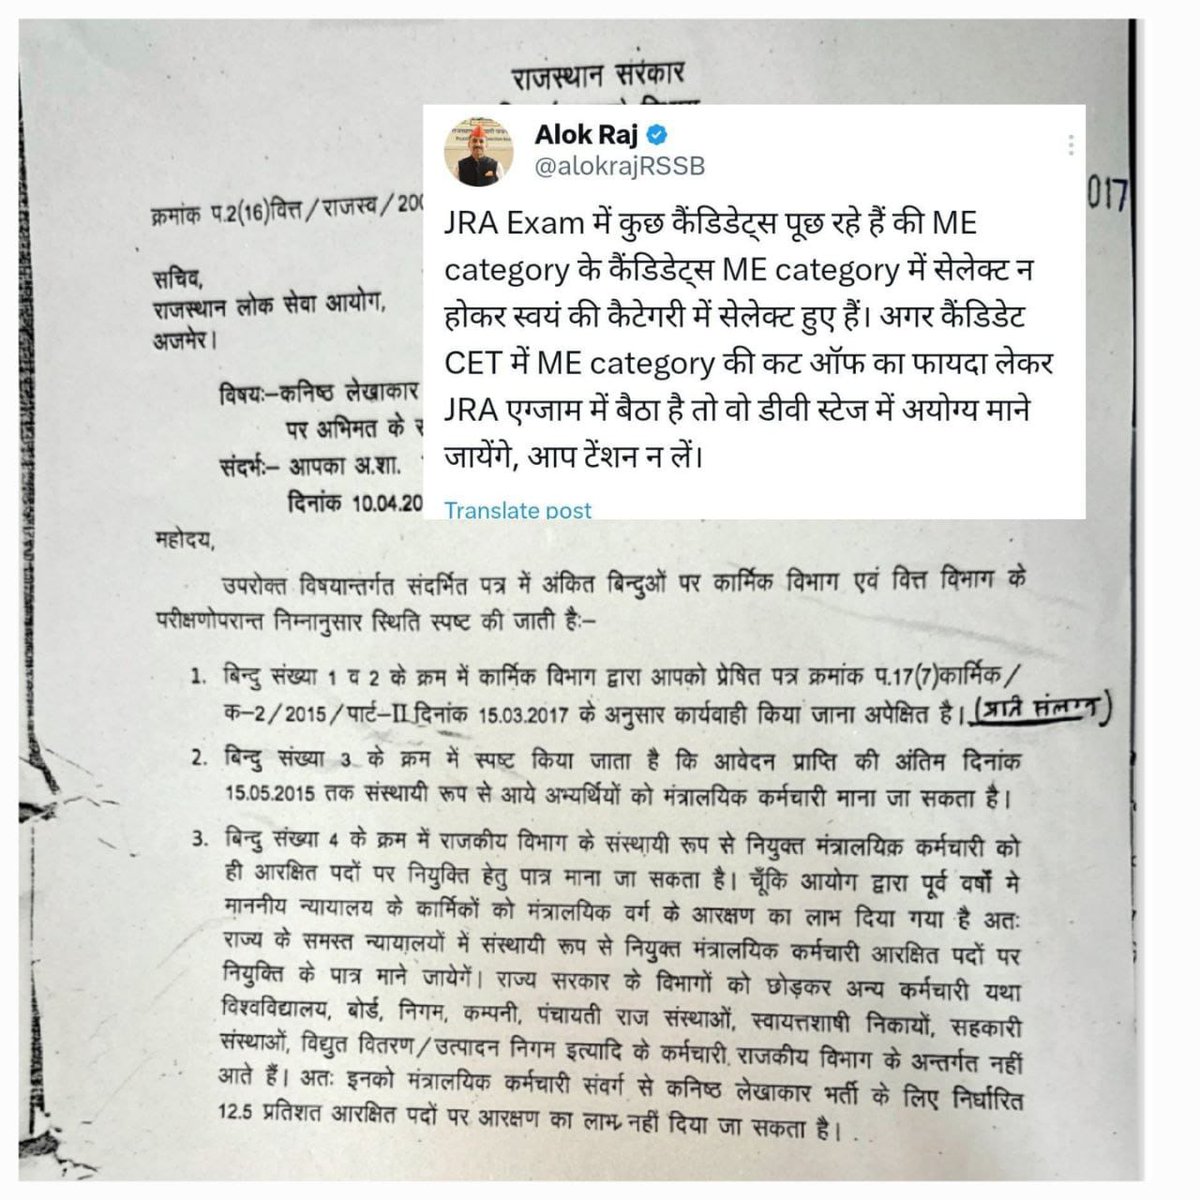 राजस्थान सरकार
Alok Raj
@alokrajRSSB
JRA Exam में कुछ कैंडिडेट्स पूछ रहे हैं की ME
category के कैंडिडेट्स ME category में सेलेक्ट न
होकर स्वयं की कैटेगरी में सेलेक्ट हुए हैं। अगर कैंडिडेट
CET में ME category की कट ऑफ का फायदा लेकर
JRA एग्जाम में बैठा है तो वो डीवी स्टेज में अयोग्य माने
जायेंगे, आप टेंशन न लें।
Translate post
क्रमांक प.2(16)वित्त/राजस्व/200
017
सचिव,
राजस्थान लोक सेवा आयोग,
अजमेर।
विषयः-कनिष्ठ लेखाकार
पर अभिमत के
संदर्भः- आपका अ.शा.
दिनांक 10.04.20
महोदय,
उपरोक्त विषयान्तर्गत संदर्भित पत्र में अंकित बिन्दुओं पर कार्मिक विभाग एवं वित्त विभाग के
परीक्षणोपरान्त निम्नानुसार स्थिति स्पष्ट की जाती हैः-
1. बिन्दु संख्या 1 व 2 के क्रम में कार्मिक विभाग द्वारा आपको प्रेषित पत्र क्रमांक प.17(7)कार्मिक/
क-2/2015/पार्ट-II दिनांक 15.03.2017 के अनुसार कार्यवाही किया जाना अपेक्षित है। (प्रति संलग्न)
2. बिन्दु संख्या 3 के क्रम में स्पष्ट किया जाता है कि आवेदन प्राप्ति की अंतिम दिनांक
15.05.2015 तक संस्थायी रूप से आये अभ्यर्थियों को मंत्रालयिक कर्मचारी माना जा सकता है।
3. बिन्दु संख्या 4 के क्रम में राजकीय विभाग के संस्थायी रूप से नियुक्त मंत्रालयिक कर्मचारी को
ही आरक्षित पदों पर नियुक्ति हेतु पात्र माना जा सकता है। चूँकि आयोग द्वारा पूर्व वर्षों मे
माननीय न्यायालय के कार्मिकों को मंत्रालयिक वर्ग के आरक्षण का लाभ दिया गया है अतः
राज्य के समस्त न्यायालयों में संस्थायी रूप से नियुक्त मंत्रालयिक कर्मचारी आरक्षित पदों पर
नियुक्ति के पात्र माने जायेगें। राज्य सरकार के विभागों को छोड़कर अन्य कर्मचारी यथा
विश्वविद्यालय, बोर्ड, निगम, कम्पनी, पंचायती राज संस्थाओं, स्वायत्तशाषी निकायों, सहकारी
संस्थाओं, विद्युत वितरण/उत्पादन निगम इत्यादि के कर्मचारी राजकीय विभाग के अन्तर्गत नहीं
आते हैं। अतः इनको मंत्रालयिक कर्मचारी संवर्ग से कनिष्ठ लेखाकार भर्ती के लिए निर्धारित
12.5 प्रतिशत आरक्षित पदों पर आरक्षण का लाभ नहीं दिया जा सकता है।